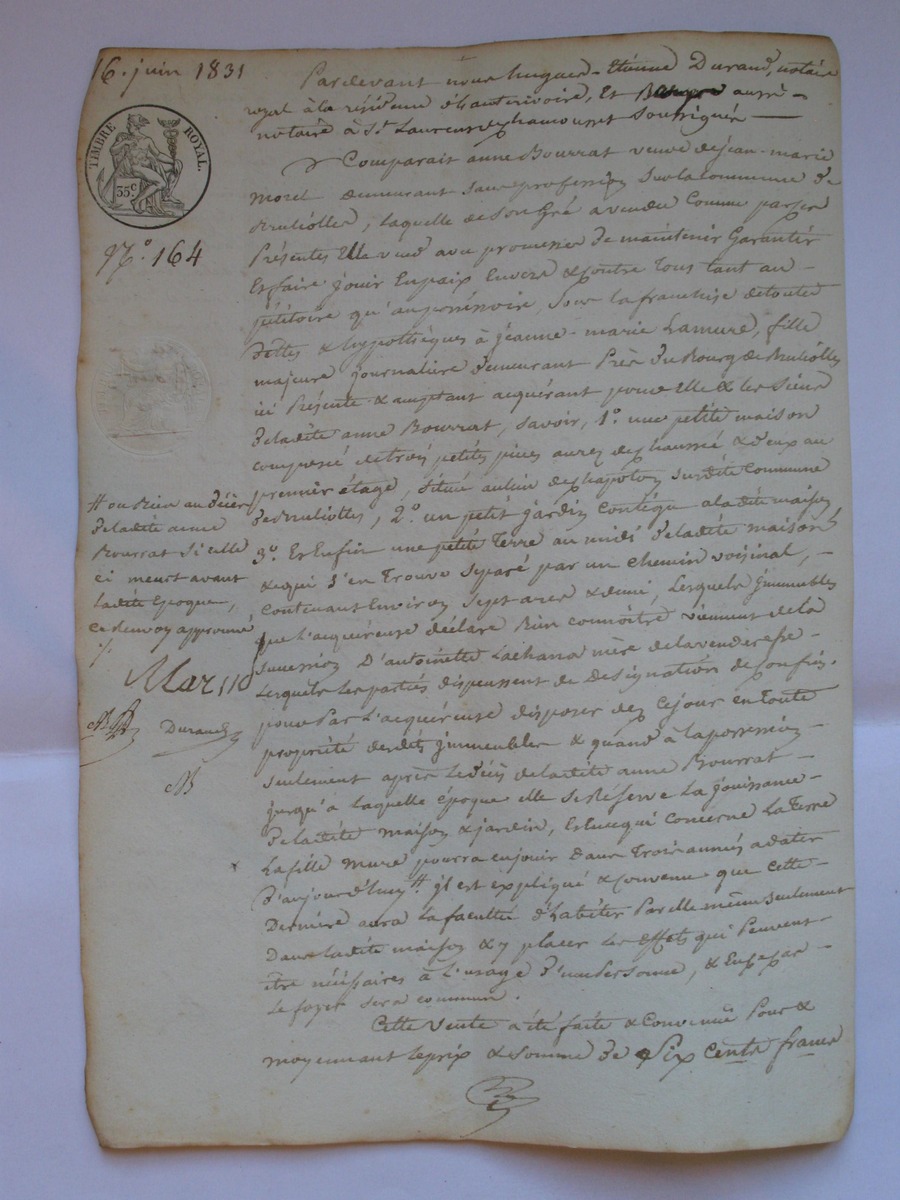 16. juin 1831
TIMBRE ROYAL.
35c
No. 164
Pardevant nous hugues-Etienne Durand, notaire
royal à la résidence d'hauterivoire, Et aussi
notaire à St. Laurent de chamousset Soussignés
Comparait anne Bourrat veuve de jean-marie
Morel demeurant sans profession sur la commune de
Brulioles, laquelle de son Gré a vendu Comme par ses
Présentes Elle vend avec promesse de maintenir Garantir
Et faire jouir En paix Envers & contre Tous tant au
pétitoire qu'au possessoire, sous la franchise de toutes
dettes & hypothèques à jeanne-marie Lamure, fille
majeure journalière demeurant Près du Bourg de Brulioles
ici Présente & acceptant acquérant pour Elle & les Siens
de ladite anne Bourrat, savoir, 1o. une petite maison
composée de trois petites pièces au rez de chaussée & deux au
premier étage, située au lieu de chapoton susdite Commune
de Brulioles, 2o. un petit jardin contigu a ladite maison
3o. Et Enfin une petite Terre au midi de ladite maison
& qui s'en Trouve séparé par un chemin voisinal,
contenant Environ sept ares & demi, Lesquels jmmeubles
que l'acquéreuse déclare Bien connoître viennent de la
succession D'antoinette Lachana mère de la venderesse
Lesquels les parties dispensent de Désignation de confins.
pour Par L'acquéreuse disposer dez ce jour en toute
propriété desdits jmmeubles & quand à la possession
seulement après le décès de ladite anne Bourrat
jusqu'à laquelle époque elle se Réserve La jouissance
de ladite maison & jardin, Et en ce qui concerne La Terre
La fille Mure pourra en jouir dans Trois années a dater
d'aujourd'huy # jl est expliqué & convenu que cette
Dernière aura La faculté d'habiter Par elle même seulement
Dans ladite maison & y placer les Effets qui Peuvent
être nécessaires à l'usage d'une Personne,
Le foyer sera commun.
Cette Vente a été faite & convenue Pour &
moyennant le prix & somme de Six Cents francs
# ou Bien au décès
de ladite anne
Bourrat si celle
ci meurt avant
ladite Epoque,
ce Renvoy approuvé
Durand